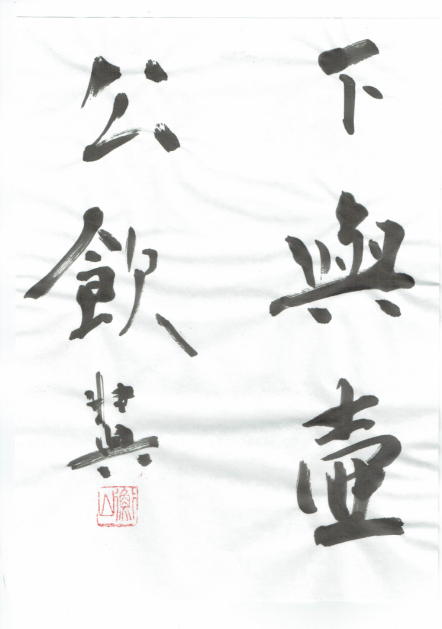 下與壺
公飲